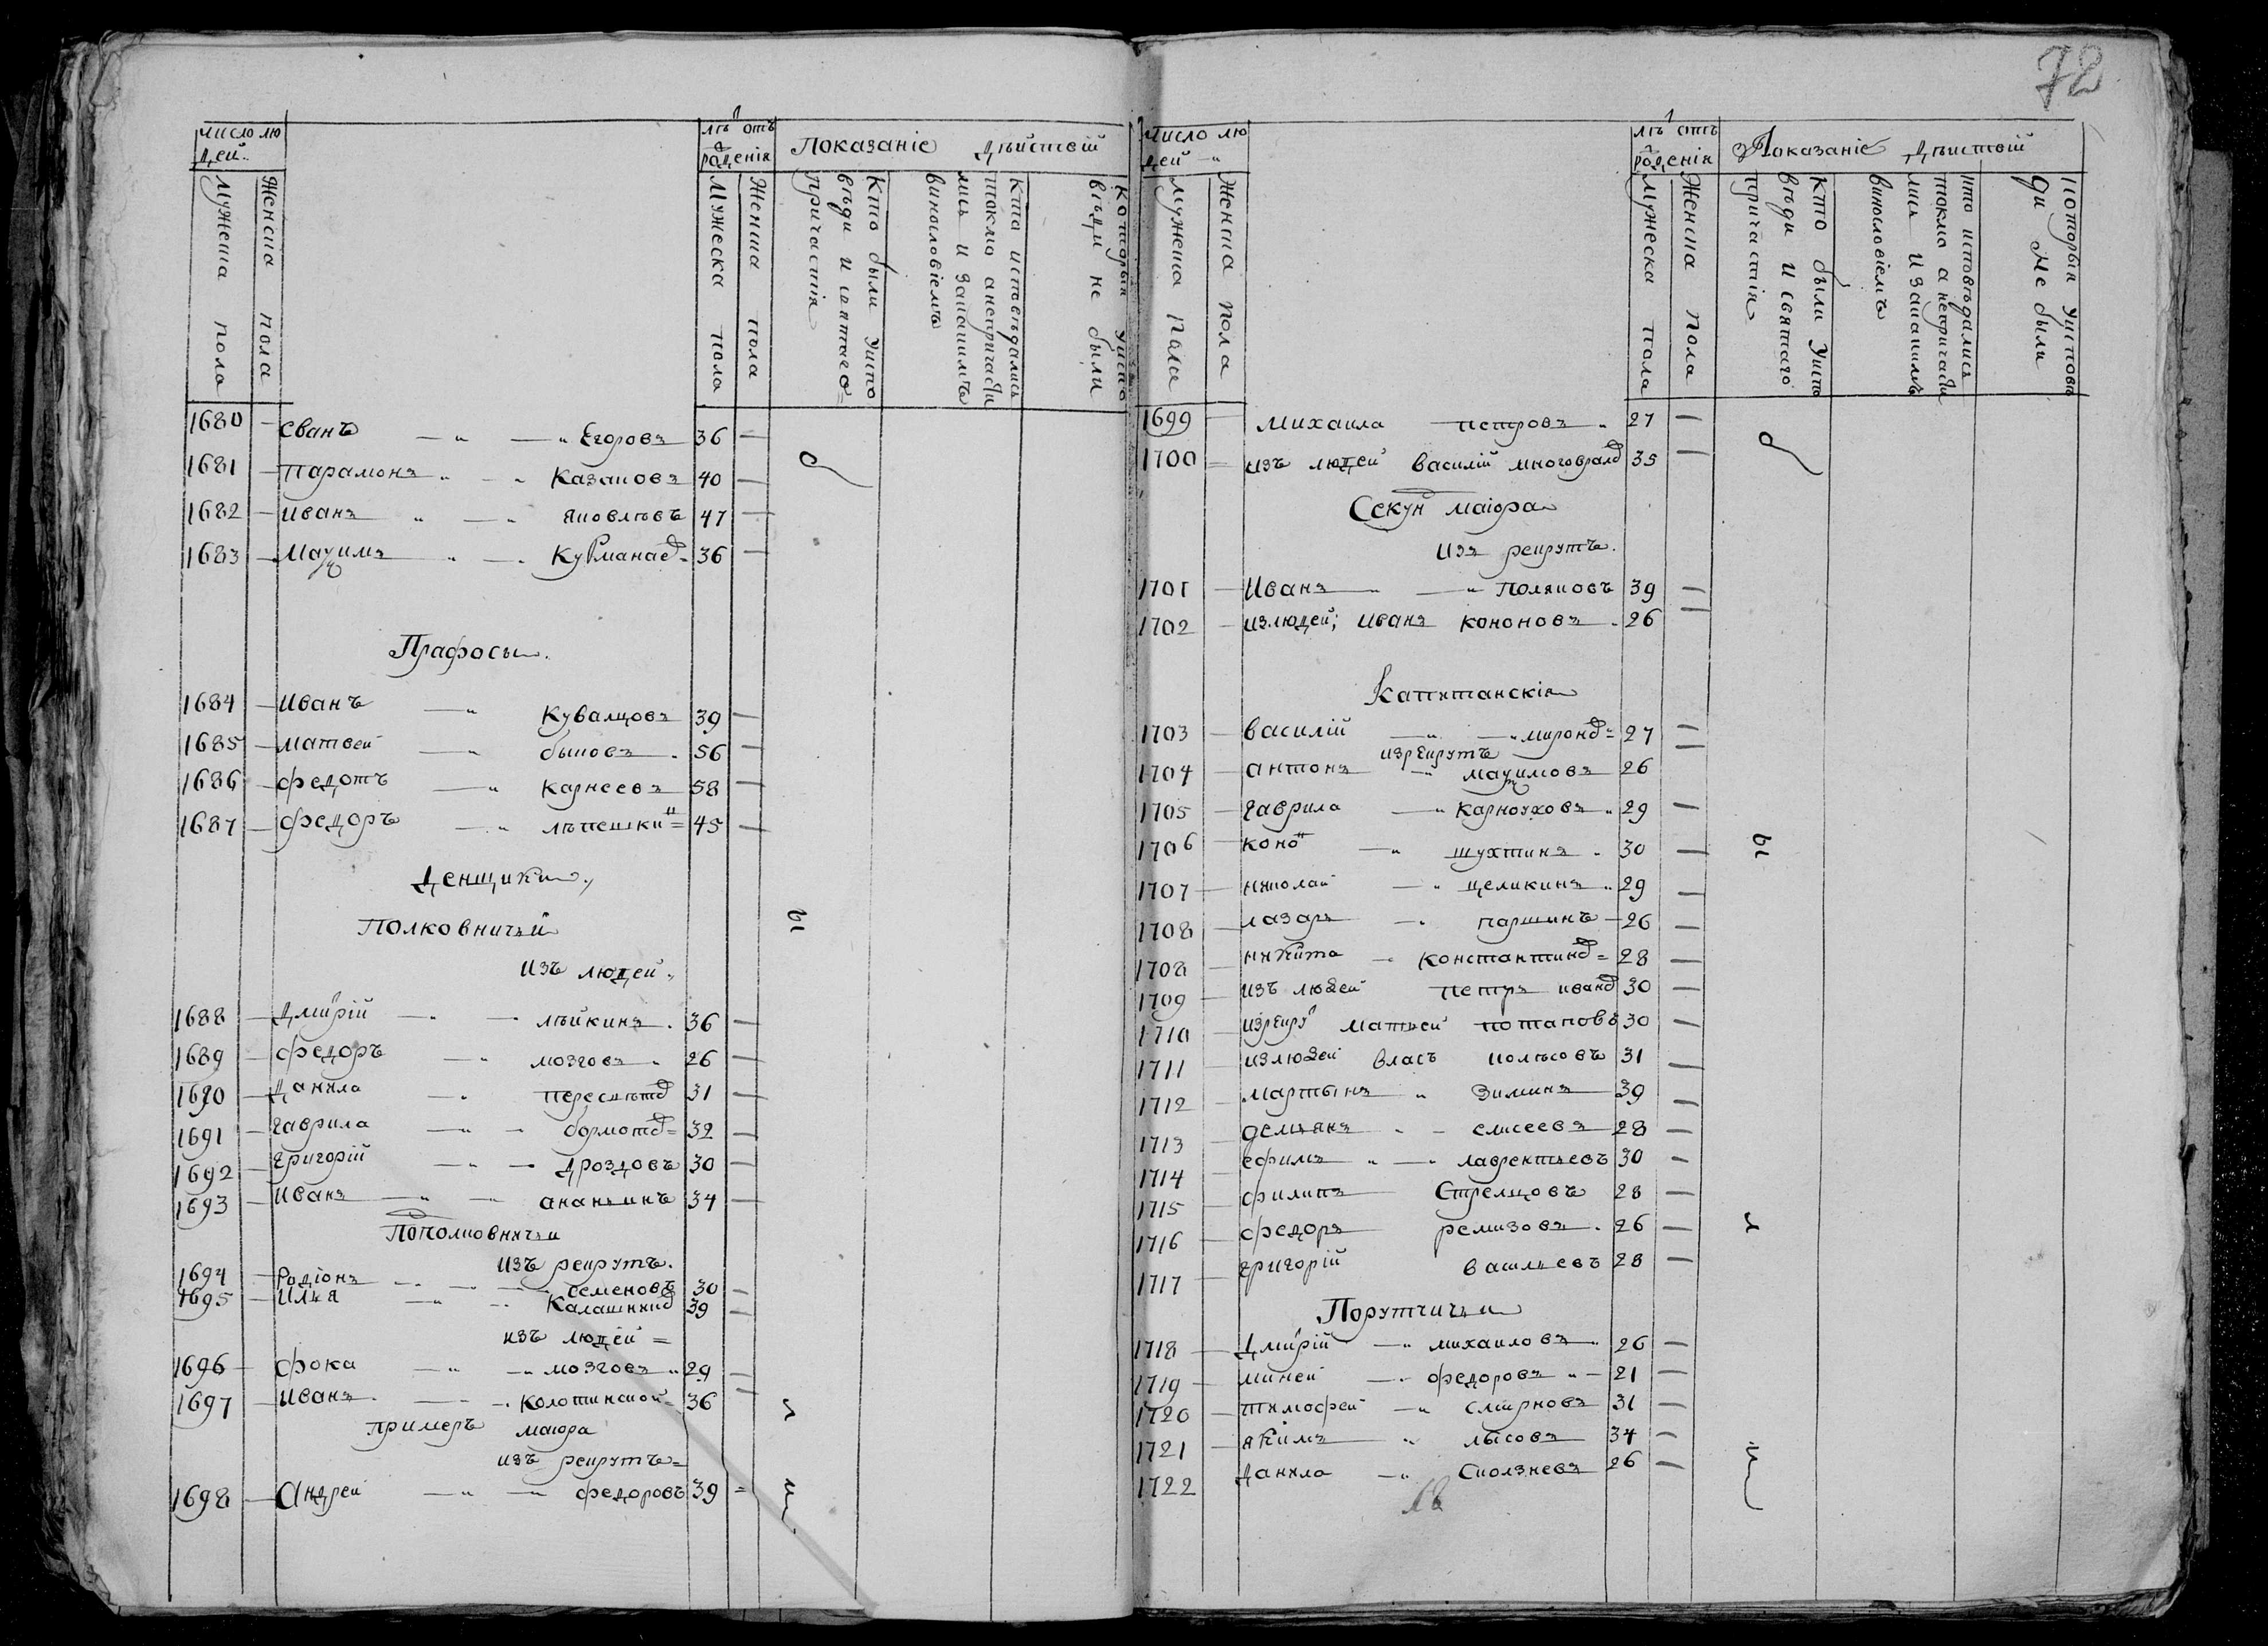 72
число лю
дей..
лѣ отъ
роденія
Показаніе дѣйствій
Мужеска пола
Женска пола
Мужеска пола
Женска пола
Кто были уиспо
вѣди и святаго
причастія
Кто исповѣдались
токмо а непричасти
лись и закакимъ
винословіемъ
Которыя уиспо
вѣди не были
1680 — сванъ — Егоровъ 36 —
1681 — парамонъ — Казаковъ 40 —
1682 — иванъ — яковлевъ 47 —
1683 — Маѯимъ — Курманаев 36 —
Прафосы
1684 — иванъ — Кувалцовъ 39 —
1685 — матвеи — быковъ 56 —
1686 — федотъ — Карнеевъ 58 —
1687 — федоръ — лѣпешкин 45 —
Денщики
Полковничьи
изъ людеи
1688 — Дмитрій — лѣйкинъ 36 —
1689 — федоръ — мозговъ 26 —
1690 — данила — пересѣтов 31 —
1691 — гаврила — бормотов 32 —
1692 — григорій — дроздовъ 30 —
1693 — иванъ — ананьинъ 34 —
Подполковничьи
изъ рекрутъ.
1694 — Родіонъ — семеновъ 30 —
1695 — илья — Калашников 39 —
изъ людеи
1696 — фока — мозговъ 29 —
1697 — иванъ — Колотинской 36 —
примеръ маіора
изъ рекрутъ
1698 — Андреи — федоровъ 39
о
ы
л
и
Число лю
дей
лѣ отъ
роденія
Показаніе дѣйствій
Мужеска пола
Женска пола
Мужеска пола
Женска пола
Кто были уиспо
вѣди и святаго
причастія
Кто исповѣдались
токмо а непричасти
лись и закакимъ
винословіемъ
Которыя уисповѣ
ди не были
1699 — михаила петровъ 27 —
1700 — изъ людей василій многовралов 35 —
Секун маіора
изъ рекрутъ.
1701 — Иванъ — Поляковъ 39 —
1702 — излюдей; иванъ кононовъ 26 —
Капитанскія
1703 — василій — миронов 27 —
изрекрутъ
1704 — антонъ — маѯимовъ 26 —
1705 — гаврила — карноуховъ 29 —
1706 — конон — шухтинъ 30 —
1707 — николаи — целикинъ 29 —
1708 — лазарь — паршинъ 26 —
1708 — никита — константинов 28 —
1709 — изъ людеи петръ иванов 30 —
1710 — изрекру матвеи потаповъ 30 —
1711 — излюдеи власъ колѣсовъ 31 —
1712 — мартынъ — зиминъ 39 —
1713 — демьянъ — елисеевъ 28 —
1714 — ефимъ — лаврентьевъ 30 —
1715 — филипъ Стрелцовъ 28 —
1716 — федоръ ремизовъ 26 —
1717 — григорій васильевъ 28 —
Порутчичьи
1718 — Дмитрій — михаиловъ 26 —
1719 — минеи — федоровъ 21 —
1720 — тимофеи — смирновъ 31 —
1721 — якимъ — лысовъ 34 —
1722 — данила — Сколзневъ 26 —
о
ы
л
и